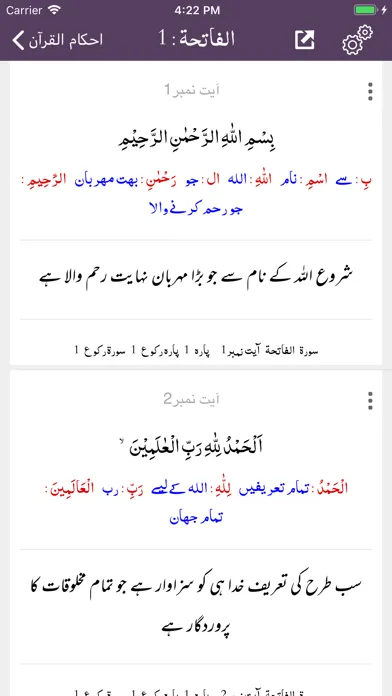 Carrier 4:22 PM
احکام القرآن
الفاتحة: 1
آیت نمبر1
بِسْمِ اللهِ الرَّحْمٰنِ الرَّحِیْمِ
بِ: سے اسْمِ: نام اللهِ: الله ال: جو رَحْمٰنِ: بهت مهربان الرَّحِیمِ:
جو رحم کرنے والا
شروع اللہ کے نام سے جو بڑا مہربان نہایت رحم والا ہے
سورة الفاتحة آیت نمبر1 پاره 1 پاره رکوع 1 سورة رکوع 1
آیت نمبر2
اَلْحَمْدُ لِلّٰهِ رَبِّ الْعٰلَمِیْنَ ۙ
الْحَمْدُ: تمام تعریفیں لِلّٰهِ: الله کے لیے رَبِّ: رب الْعَالَمِینَ:
تمام جهان
سب طرح کی تعریف خدا ہی کو سزاوار ہے جو تمام مخلوقات کا
پروردگار ہے